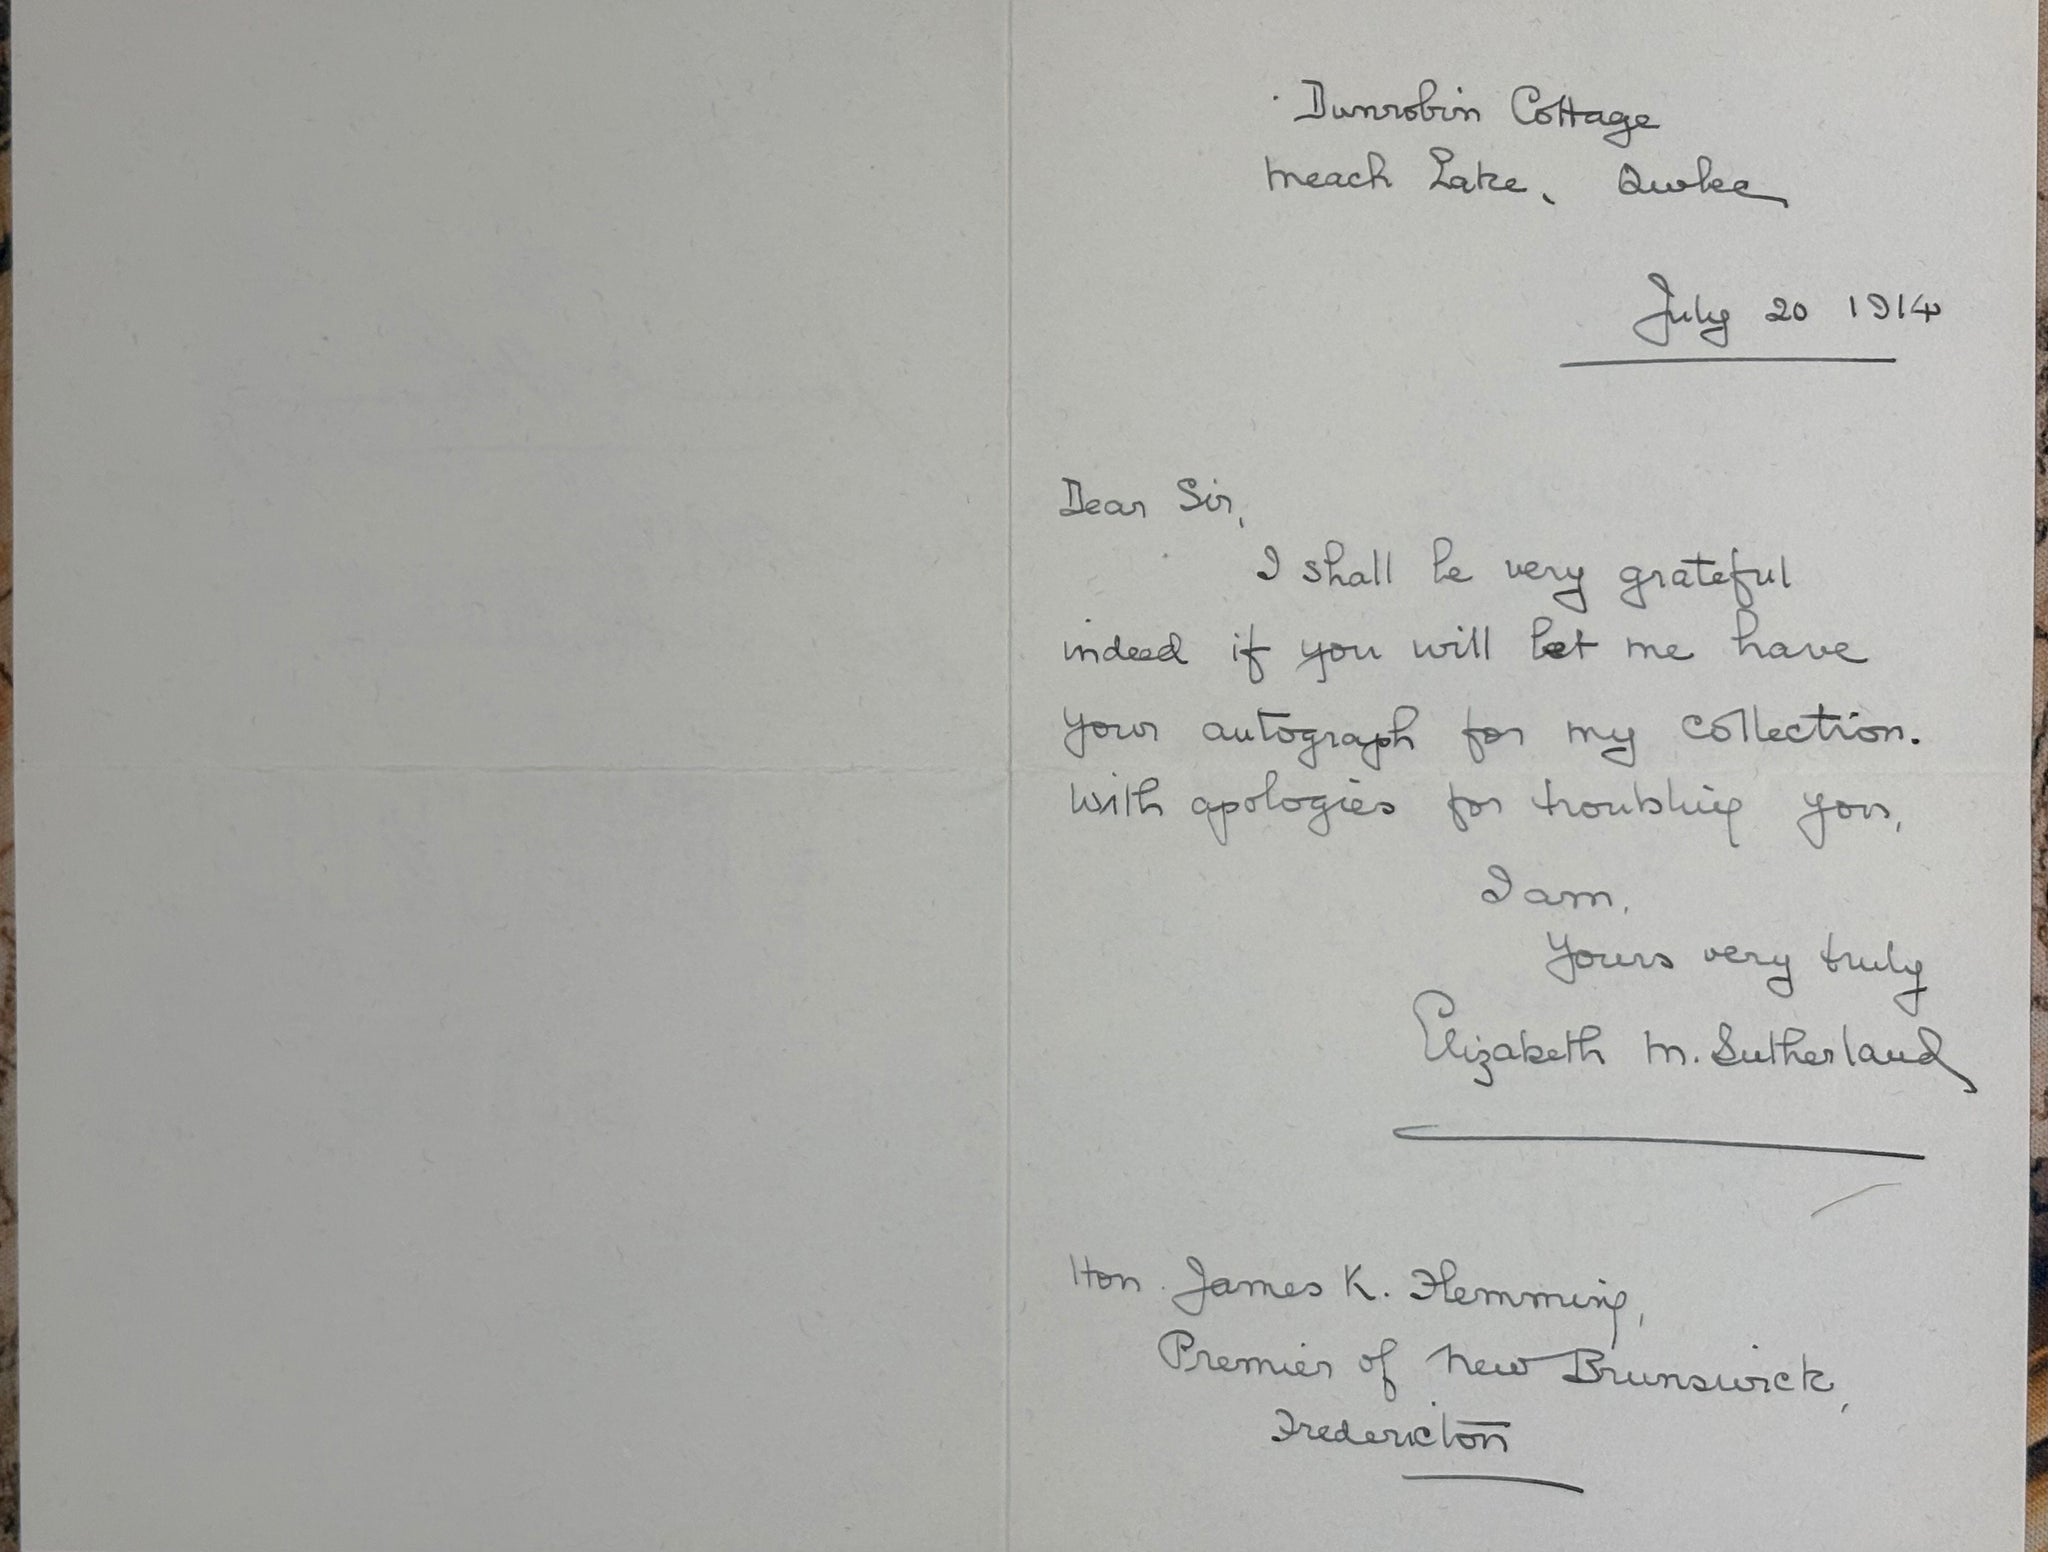 Dunrobin Cottage
Meach Lake, Quebec
July 20 1914
Dear Sir,
I shall be very grateful
indeed if you will let me have
your autograph for my collection.
With apologies for troubling you,
I am,
Yours very truly
Elizabeth M. Sutherland
Hon. James K. Flemming,
Premier of New Brunswick,
Fredericton